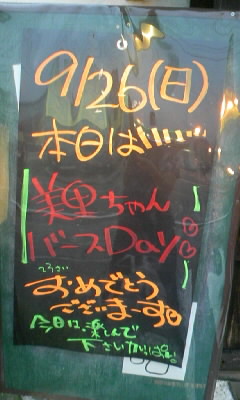 9/26(日)
本日は
美里ちゃん
バースDay♡♡
おめでとう
ございまーす
今日は楽しんで
下さい